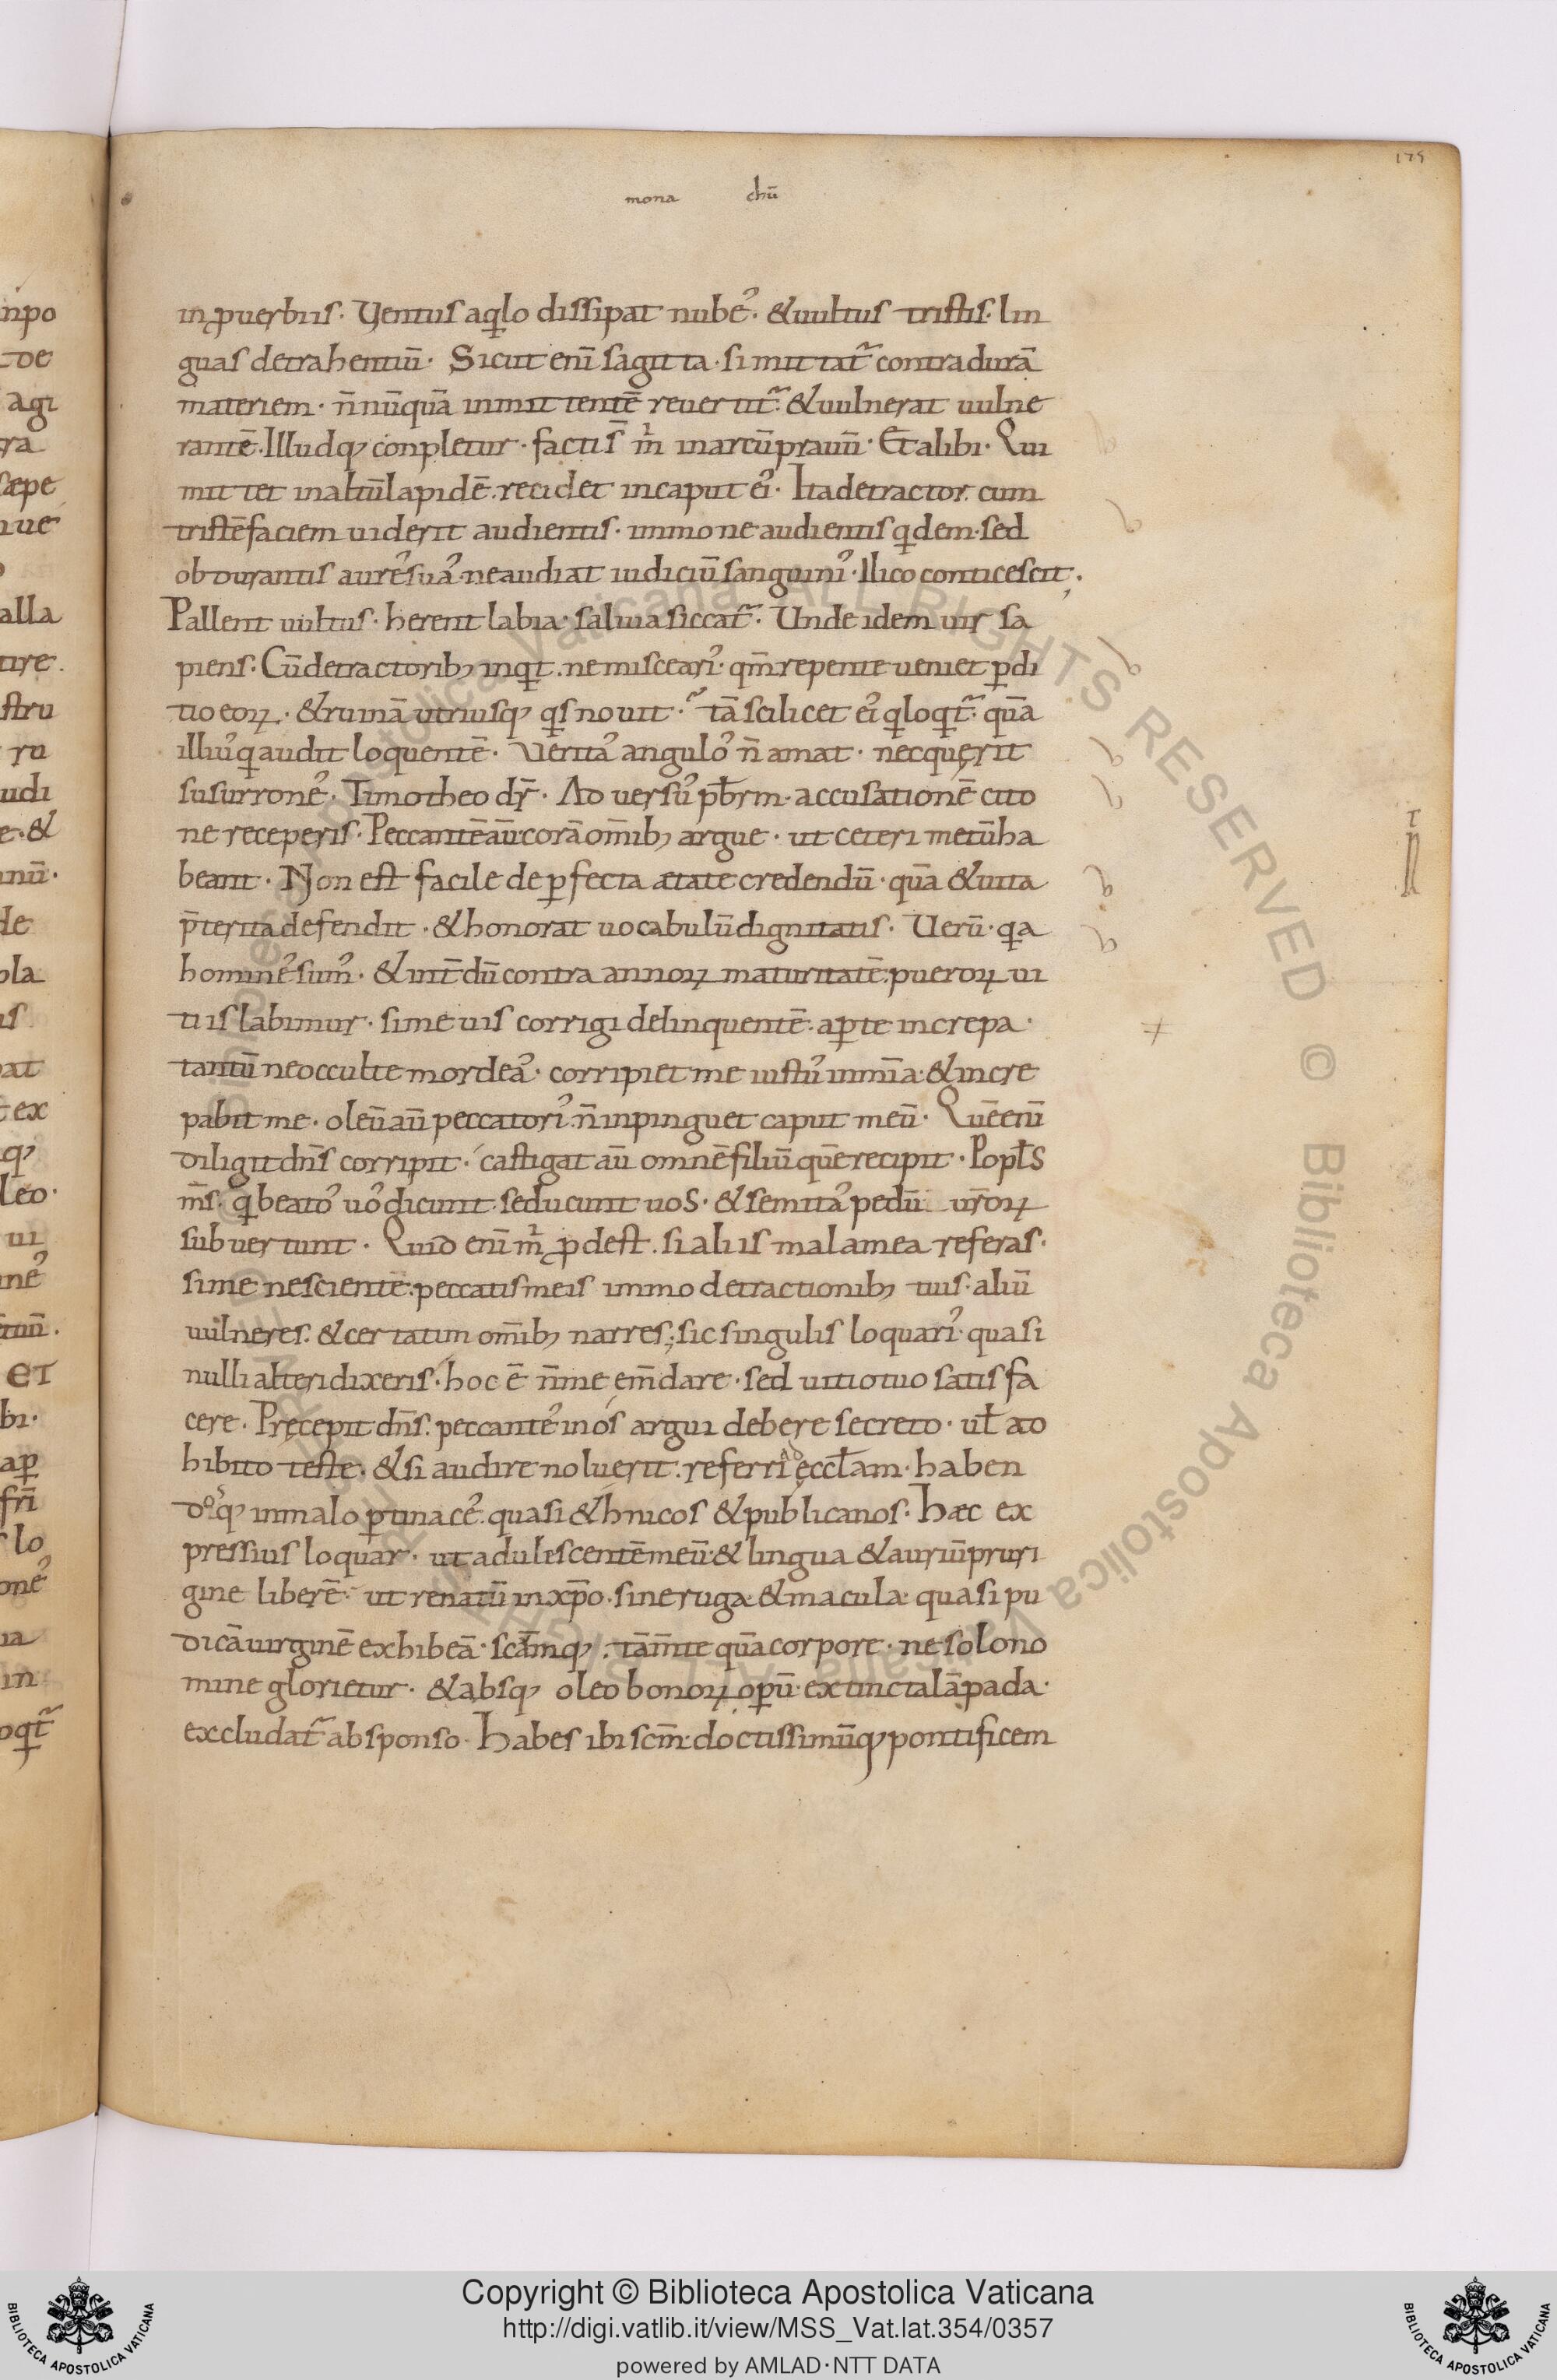 175
mona chū
in ꝓuerbiis. Ventus aqͥlo dissipat nubeˀ. & uultus tristis. lin
guas detrahentiū. Sicut enī sagitta. si mittat᷑ contra durā
materiem. n̄nūquā inmittentē reuertit᷑. & uulnerat uulne
rantē. Illudq; conpletur. facti s̄ mͥ in arcū prauū. Et alibi. Qui
mittet in altū lapidē. recidet in caput eiˀ. Ita detractor. cum
tristē faciem uiderit audientis. immo ne audientis qͥdem. sed
obdurantis aureˀ suaˀ. ne audiat iudiciū sanguiniˀ. Ilico conticescit.
Pallent uultus. herent labia. saliua siccat᷑. Unde idem uir sa
piens. Cū detractorib; inqͥt. ne misceariˀ. qm̄ repente ueniet ꝑdi
tio eoꝝ. & ruinā utriusq; qͥs nouit. tā scilicet eiˀ qͥ loqͥt᷑. quā
illiuˀ qͥ audit loquentē. Veritaˀ anguloˀ n̄ amat. nec quęrit
susurroneˀ. Timotheo dr̄. Aduersuˀ pb̄rm. accusationē cito
ne receperis. Peccantē aū corā om̄ib; argue. ut ceteri metū ha
beant. Non est facile de ꝑfecta ætate credendū. quā & uita
p̄terita defendit. & honorat uocabulū dignitatis. Verū. qͥa
homineˀ sumˀ. & int̄dū contra annoꝝ maturitatē. pueroꝝ ui
tiis labimur. si me uis corrigi delinquentē. aꝑte increpa.
tantū ne occulte mordeaˀ. corripiet me iustuˀ in mīa. & incre
pabit me. oleū aū peccatoriˀ. n̄ inpinguet caput meū. Quē enī
diligit dn̄s corripit. castigat aū omnē filiū quē recipit. Popl̄s
m̄s. qͥ beatoˀ uoˀ dicunt. seducunt uos. & semitaˀ pedū ur̄oꝝ
subuertunt. Quid enī mͥ ꝓdest. si aliis mala mea referas.
si me nesciente. peccatis meis immo detractionib; tuis. aliū
uulneres. & certatim om̄ib; narres. sic singulis loquariˀ. quasi
nulli alteri dixeris. hoc ē n̄ me em̄dare. sed uitio tuo satisfa
cere. Pręcepit dn̄s. peccanteˀ in nos argui debere secreto. ul̄ ad
hibito teste. & si audire noluerit. referri ad ęccl̄am. haben
doˀq; in malo ꝑtinaceˀ. quasi &hnicos & publicanos. Hæc ex
pressius loquar. ut adulescentē meū. & lingua & auriū pruri
gine liberē. ut renatū in xp̄o. sine ruga & macula. quasi pu
dicā uirginē exhibeā. scām̄q;. tā m̄te quā corpore. ne solo no
mine glorietur. & absq; oleo bonoꝝ oꝑū. extincta lāpada.
excludat᷑ ab sponso. Habes ibi scm̄. doctissimūq; pontificem
Copyright © Biblioteca Apostolica Vaticana
http://digi.vatlib.it/view/MSS_Vat.lat.354/0357
powered by AMLAD·NTT DATA
BIBLIOTECA APOSTOLICA VATICANA
BIBLIOTECA APOSTOLICA VATICANA